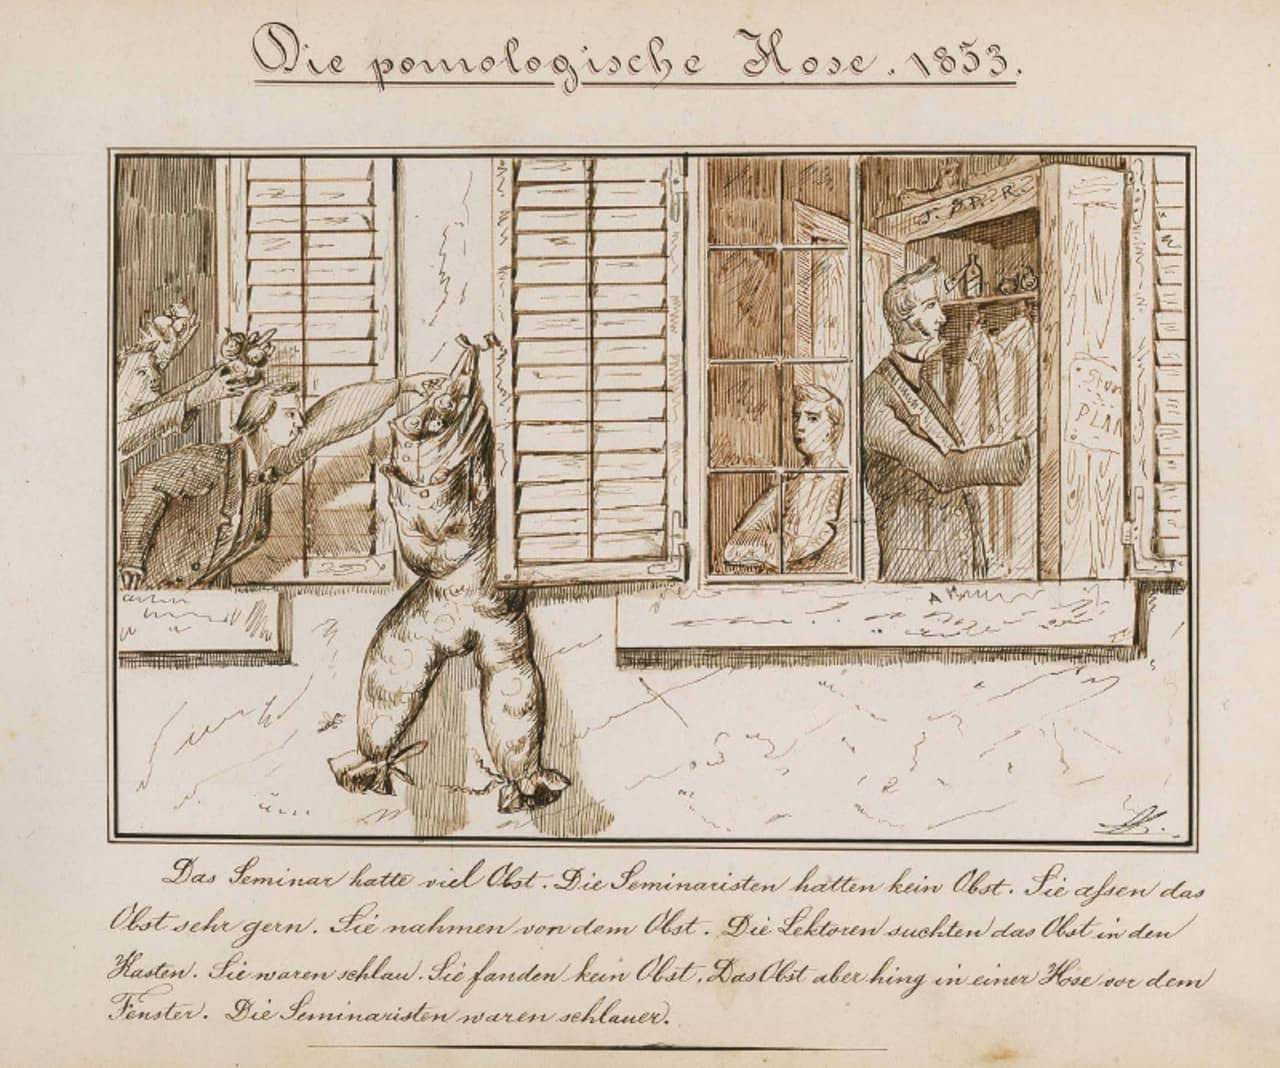 Die pomologische Hose. 1853.
J. B. R.
PLAN
Das Seminar hatte viel Obst. Die Seminaristen hatten kein Obst. Sie assen das
Obst sehr gern. Sie nahmen von dem Obst. Die Lektoren suchten das Obst in den
Kasten. Sie waren schlau. Sie fanden kein Obst. Das Obst aber hing in einer Hose vor dem
Fenster. Die Seminaristen waren schlauer.